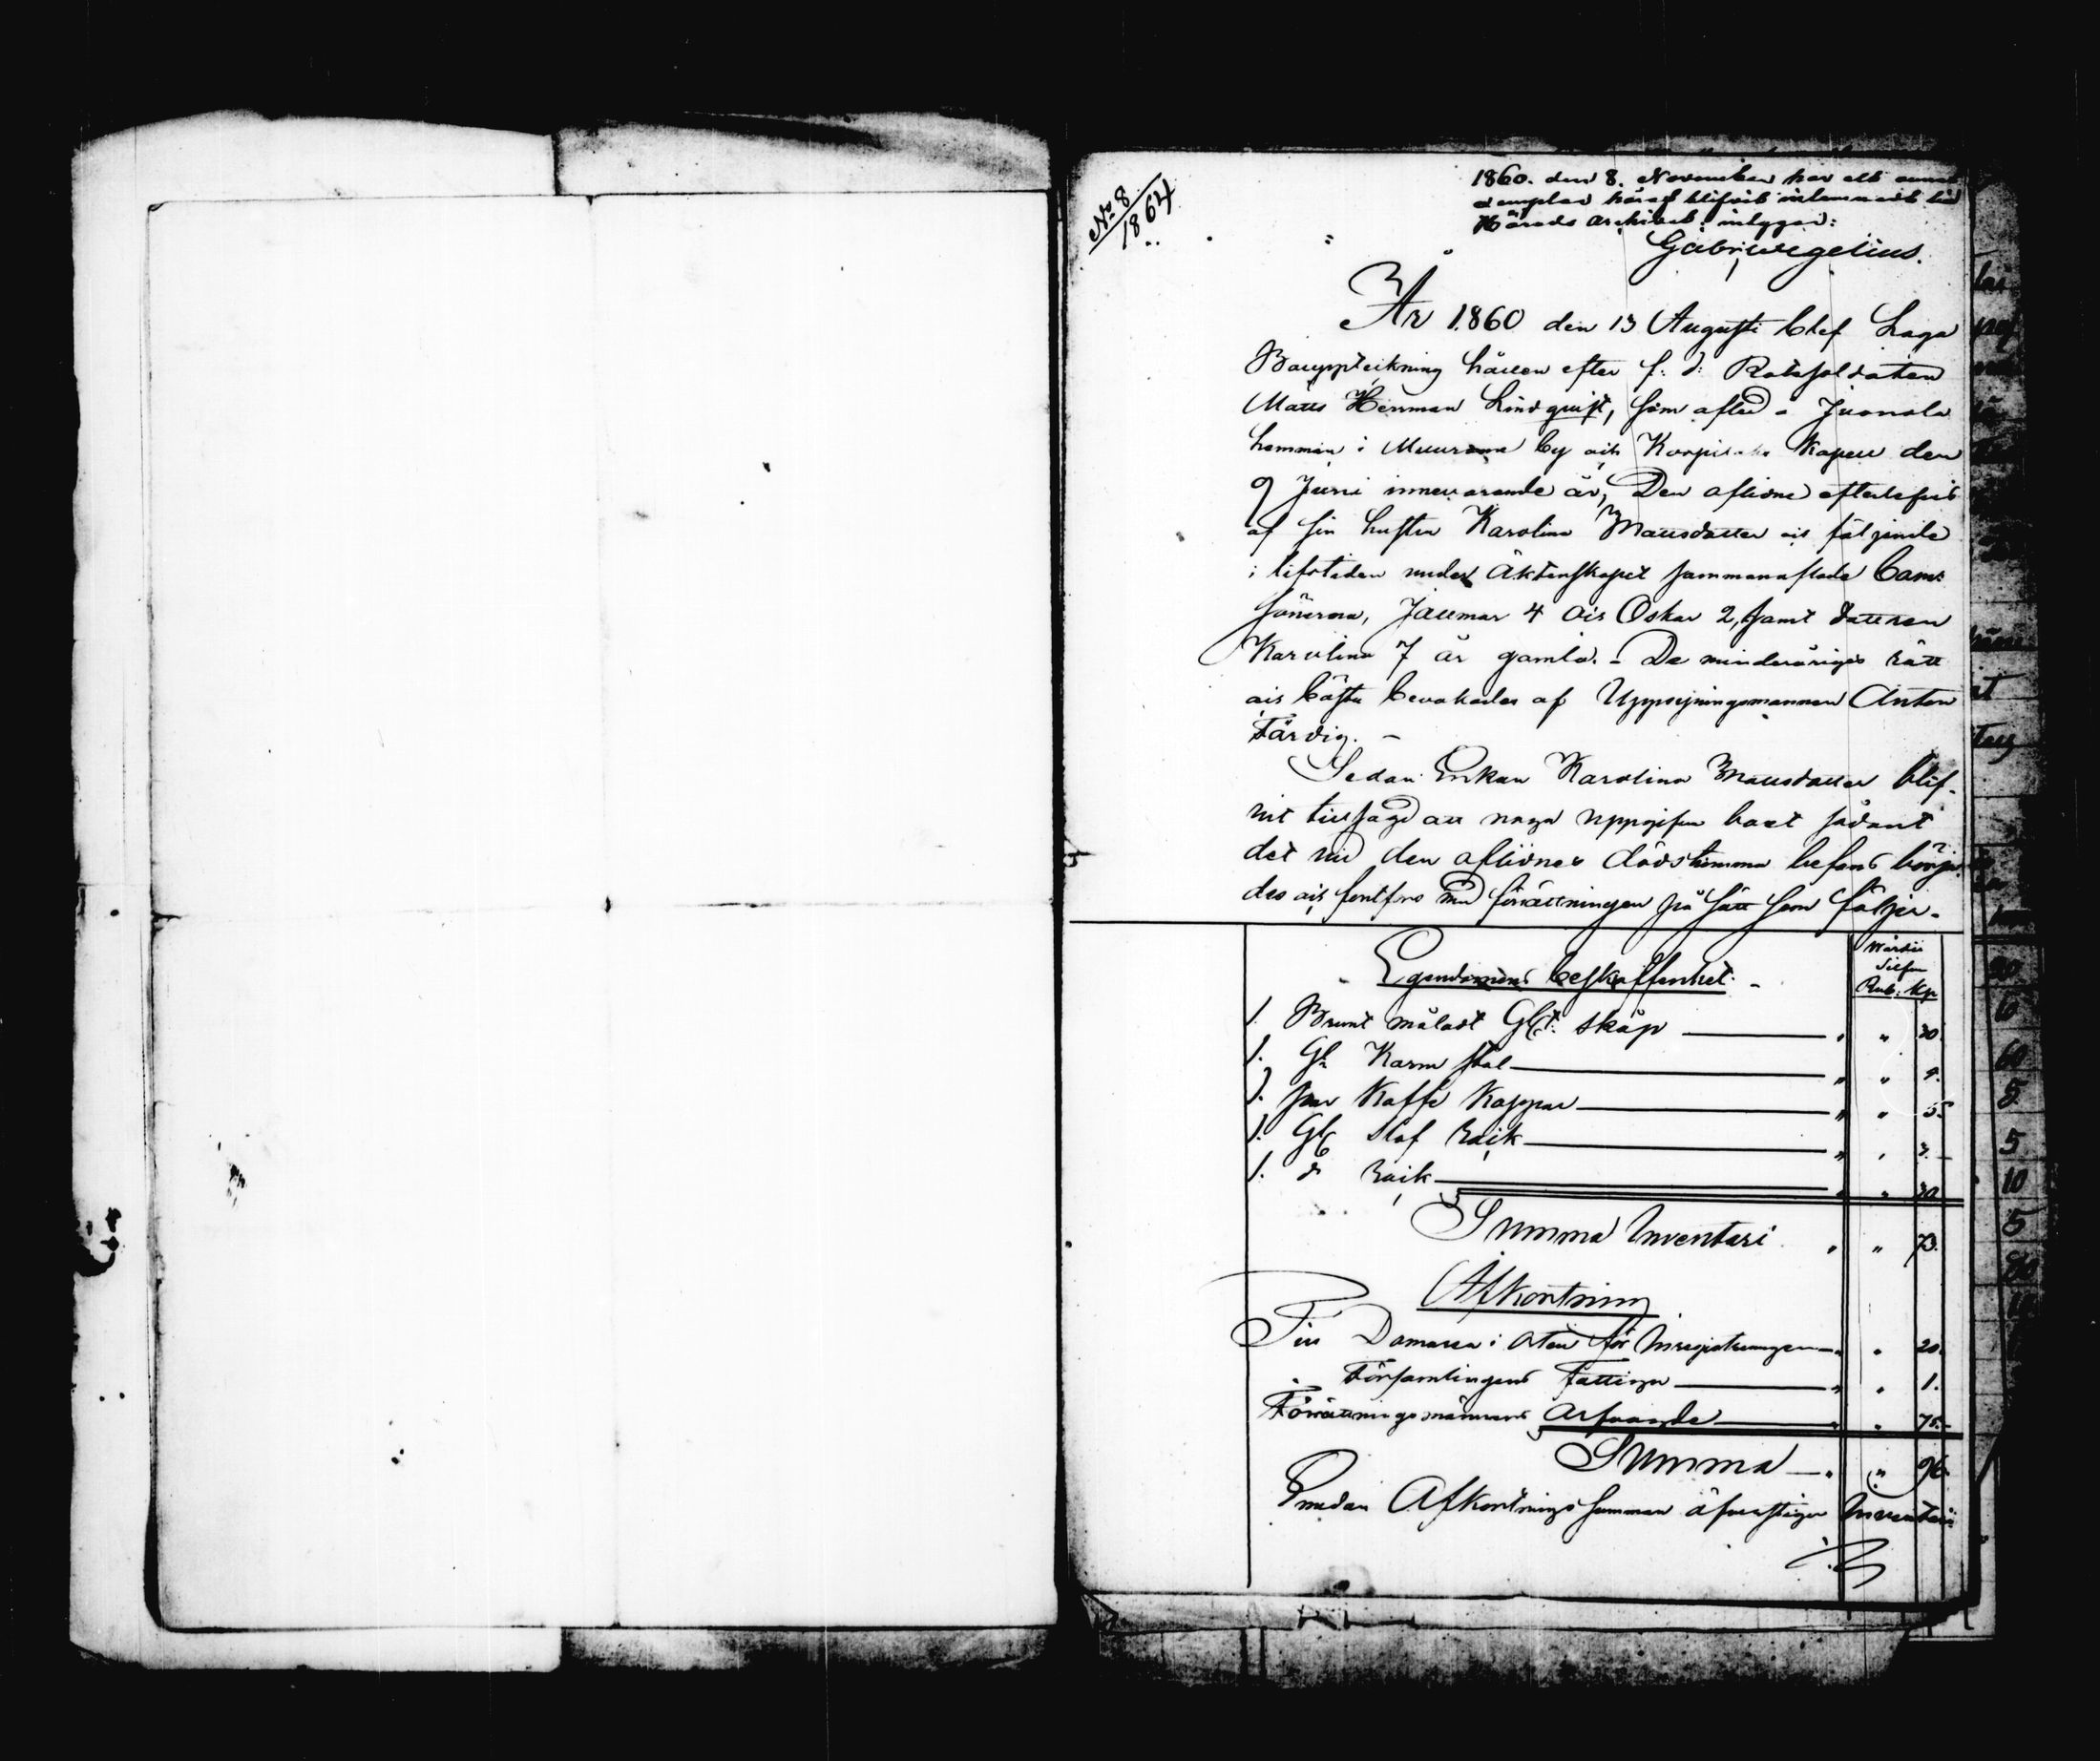 No 8
1864
1860. den 8. November har ett exem-
emplar häraf blifvit inlemnadt till
Härads Archivet; intygar:
Gabr: Wegelius.
År 1860 den 13 Augusti blef Laga
Bouppteckning hållen efter f: d: Rotesoldaten
Matts Herman Lindquist, som afled å Juonola
hemman i Muurame by och Korpilaks Kapell den
9 Juni innevarande år, Den aflidne efterlefves
af sin hustru Karolina Mattsdotter och följande
i lifstiden under Äktenskapet sammanaflade barn:
sönerna, Jallmar 4 och Oskar 2, samt dottren
Karolina 7 år gamla. - De minderårigas rätt
och bästa bevakades af Uppsyningsmannen Anton
Färdig. -
Sedan Enkan Karolina Mattsdotter blif-
vit tillsagd att noga uppgifva boet sådant
det vid den aflidnes dödstimma befans börja-
des och fortfors med förrättningen på sätt som följer.
Egendomens beskaffenhet: Wärde Silfver
Rub: Kp
1. Brunt måladt Gl:t: skåp " " 30
1. Gl Karm stol " "
1. par Kaffe Koppar " " 5.
1. Gl Slof Rock " " 3.
1. d Rock " " 30
Summa Inventarii " " 73.
Afkortning
Till Domaren i Orten för Inregistreringen " " 20.
Församlingens Fattiga " " 1.
Förrättningsmännens Arfvode " " 75.
Summa " " 96.
Emedan Afkortnings Summan öfverstiger Inventarii